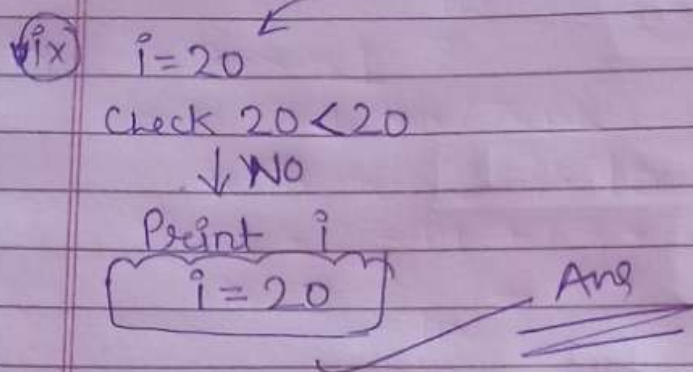 ix) i = 20
Check 20 < 20
↓ No
Print i
i = 20
Ans